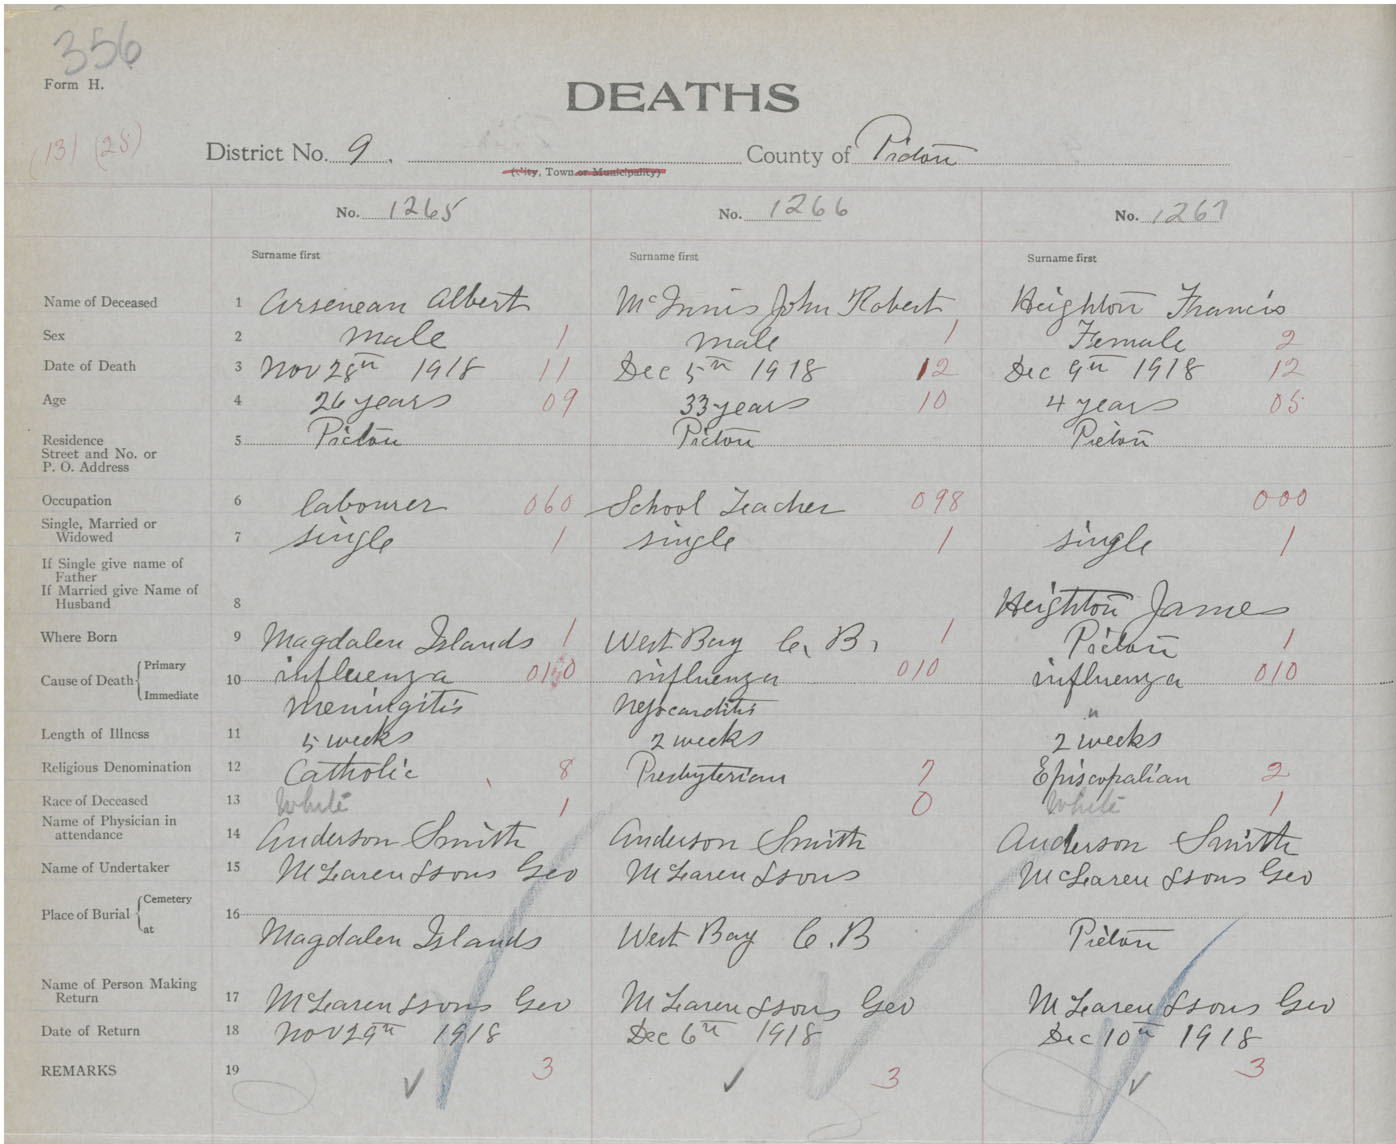 356
Form H.
DEATHS
(13) (25)
District No. 9. County of Pictou
(City, Town or Municipality)
No. 1265 No. 1266 No. 1267
Surname first Surname first Surname first
Name of Deceased 1 Arseneau Albert McInnis John Robert Heighton Francis
Sex 2 male 1 male 1 Female 2
Date of Death 3 Nov 28th 1918 11 Dec 5th 1918 12 Dec 9th 1918 12
Age 4 26 years 09 33 years 10 4 years 05
Residence 5 Pictou Pictou Pictou
Street and No. or
P. O. Address
Occupation 6 labourer 060 School Teacher 098 000
Single, Married or
Widowed 7 single 1 single 1 single 1
If Single give name of
Father
If Married give Name of
Husband 8 Heighton James
Where Born 9 Magdalen Islands 1 West Bay C. B. 1 Pictou 1
Cause of Death { Primary
10 influenza 010 influenza 010 influenza 010
Immediate meningitis Myocarditis "
Length of Illness 11 5 weeks 2 weeks 2 weeks
Religious Denomination 12 Catholic 8 Presbyterian 7 Episcopalian 2
Race of Deceased 13 White 1 0 White 1
Name of Physician in
attendance 14 Anderson Smith Anderson Smith Anderson Smith
Name of Undertaker 15 McLaren & Sons Geo McLaren & Sons McLaren & Sons Geo
Place of Burial { Cemetery
16
at Magdalen Islands West Bay C. B Pictou
Name of Person Making
Return 17 McLaren & Sons Geo McLaren & Sons Geo McLaren & Sons Geo
Date of Return 18 Nov 29th 1918 Dec 6th 1918 Dec 10th 1918
REMARKS 19 ✓ 3 ✓ 3 ✓ 3